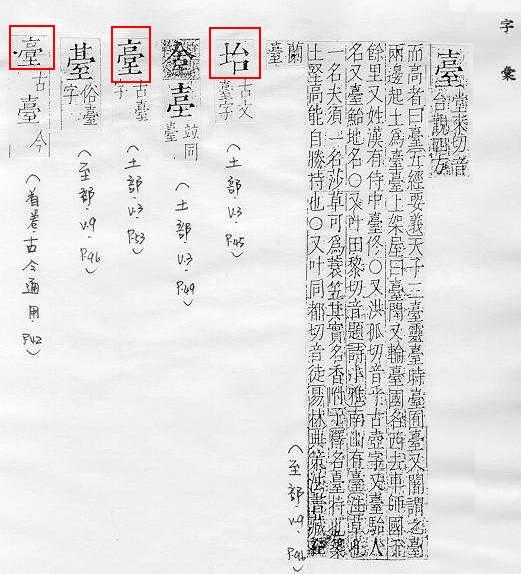 字彙
臺 堂來切音
台觀四方
而高者曰臺五經要義天子三臺靈臺時臺囿臺又闍謂之臺
兩邊起土為臺臺上架屋曰臺門又輪臺國名西去車師國千
餘里又姓漢有侍中臺佟○又洪孤切音乎古壺字又臺駘人
名又臺駘地名○又叶田黎切音題詩小雅南山有臺草也
一名夫須一名莎草可為蓑笠其實名香附子釋名臺持也築
土堅高能自勝持也○又叶同都切音徒易林典策法書藏
蘭臺
(至部·v.9·P.96)
坮 古文臺字
(土部·v.3·P.45)
臺 竝同臺
(土部·v.3·P.49)
古臺字
(土部·v.3·P.53)
俗臺字
(至部·v.9·P.96)
古臺今
(首卷·古今通用·P.42)